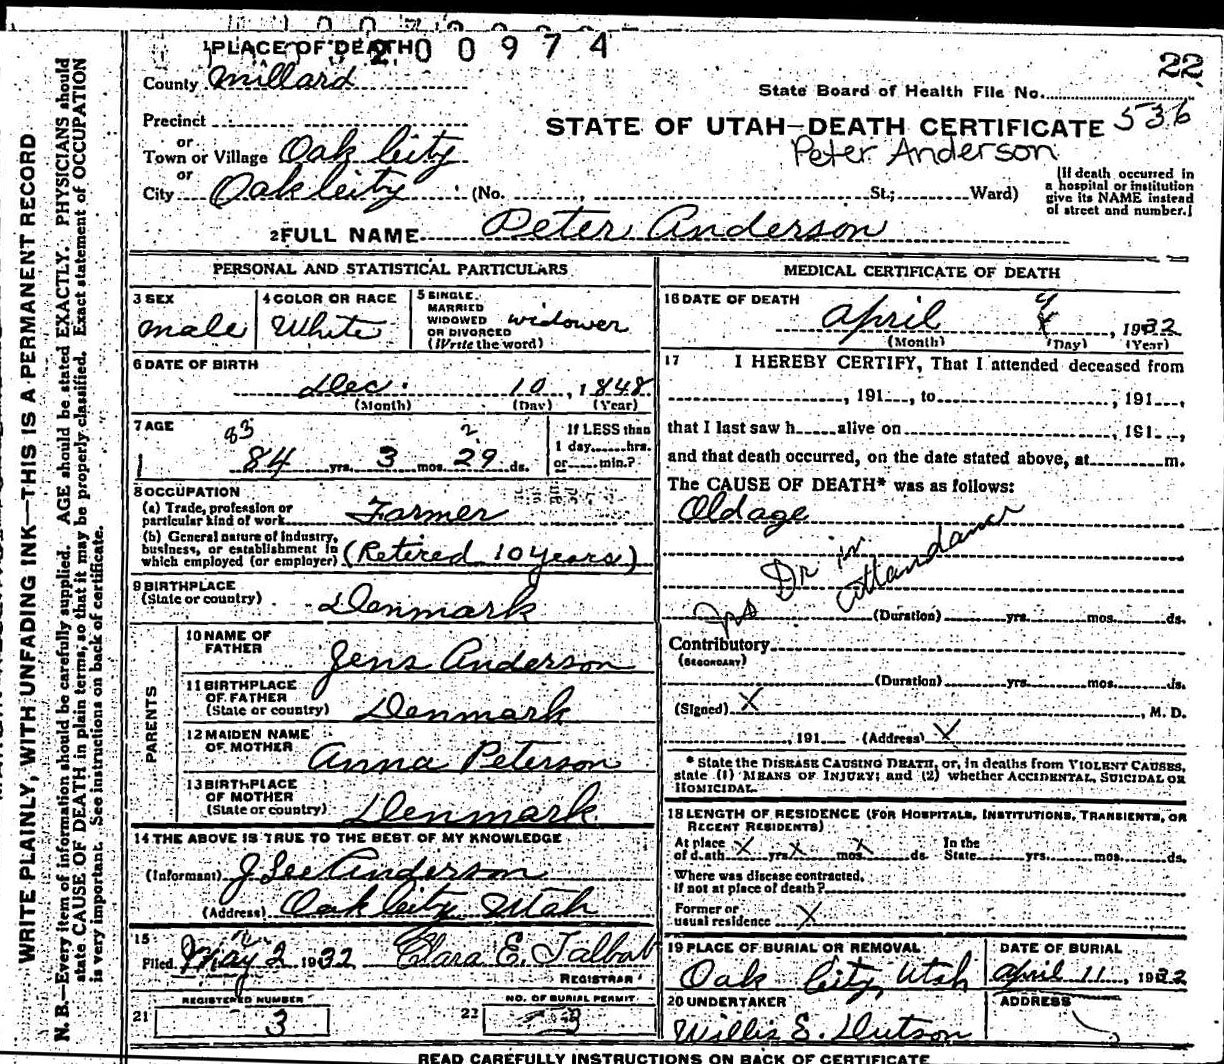 3200974
22
1 PLACE OF DEATH
County Millard
State Board of Health File No. 536
Precinct
STATE OF UTAH—DEATH CERTIFICATE
or
Town or Village Oak City
Peter Anderson
or
City Oak City (No. St.; Ward)
[If death occurred in
a hospital or institution
give its NAME instead
of street and number.]
2 FULL NAME Peter Anderson
PERSONAL AND STATISTICAL PARTICULARS
3 SEX
male
4 COLOR OR RACE
White
5 SINGLE,
MARRIED
WIDOWED
OR DIVORCED
(Write the word)
widower
6 DATE OF BIRTH
Dec. 10, 1848
(Month) (Day) (Year)
7 AGE
83 2
84 yrs. 3 mos. 29 ds.
If LESS than
1 day......hrs.
or......min.?
8 OCCUPATION
(a) Trade, profession or
particular kind of work Farmer
(b) General nature of industry,
business, or establishment in
which employed (or employer) (Retired 10 years)
9 BIRTHPLACE
(State or country) Denmark
PARENTS
10 NAME OF
FATHER Jens Anderson
11 BIRTHPLACE
OF FATHER
(State or country) Denmark
12 MAIDEN NAME
OF MOTHER Anna Peterson
13 BIRTHPLACE
OF MOTHER
(State or country) Denmark
14 THE ABOVE IS TRUE TO THE BEST OF MY KNOWLEDGE
(Informant) J Lee Anderson
(Address) Oak City Utah
15
Filed May 2 1932 Clara E. Talbot
REGISTRAR
REGISTERED NUMBER
21 3
NO. OF BURIAL PERMIT
22 3
MEDICAL CERTIFICATE OF DEATH
16 DATE OF DEATH
April 9, 1932
(Month) (Day) (Year)
17 I HEREBY CERTIFY, That I attended deceased from
, 191 , to , 191 ,
that I last saw h alive on , 191 ,
and that death occurred, on the date stated above, at m.
The CAUSE OF DEATH* was as follows:
Old age
Dr in
attendance
(Duration) yrs. mos. ds.
Contributory
(SECONDARY)
(Duration) yrs. mos. ds.
(Signed) X , M. D.
, 191 (Address) X
* State the DISEASE CAUSING DEATH, or, in deaths from VIOLENT CAUSES,
state (1) MEANS OF INJURY; and (2) whether ACCIDENTAL, SUICIDAL OR
HOMICIDAL.
18 LENGTH OF RESIDENCE (FOR HOSPITALS, INSTITUTIONS, TRANSIENTS, OR
RECENT RESIDENTS)
At place In the
of death X yrs X mos X ds. State yrs. mos. ds.
Where was disease contracted,
if not at place of death?
Former or
usual residence X
19 PLACE OF BURIAL OR REMOVAL
Oak City, Utah
DATE OF BURIAL
April 11, 1932
20 UNDERTAKER
Willis E. Dutson
ADDRESS
READ CAREFULLY INSTRUCTIONS ON BACK OF CERTIFICATE
WRITE PLAINLY, WITH UNFADING INK—THIS IS A PERMANENT RECORD
N. B.—Every item of information should be carefully supplied. AGE should be stated EXACTLY. PHYSICIANS should
state CAUSE OF DEATH in plain terms, so that it may be properly classified. Exact statement of OCCUPATION
is very important. See instructions on back of certificate.